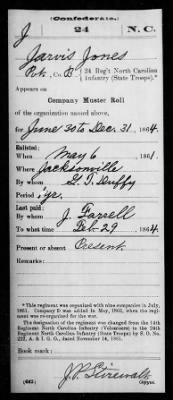 (Confederate.)
J 24 N.C.
Jarvis Jones
Pvt., Co. B, 24 Reg't North Carolina
Infantry (State Troops).*
Appears on
Company Muster Roll
of the organization named above,
for June 30 to Dec. 31, 1864.
Enlisted:
When May 6, 1861.
Where Jacksonville
By whom G. T. Duffy
Period 1 yr.
Last paid:
By whom J. Farrell
To what time Feb. 29, 1864.
Present or absent Present
Remarks:
*This regiment was organized with nine companies in July,
1861. Company D was added in May, 1862, when the regi-
ment was re-organized for the war.
The designation of the regiment was changed from 14th
Regiment North Carolina Infantry (Volunteers) to 24th
Regiment North Carolina Infantry (State Troops) by S. O.
222, A. & I. G. O., dated November 14, 1861.
Book mark:
(642) J. P. Stirewalt
Copyist.